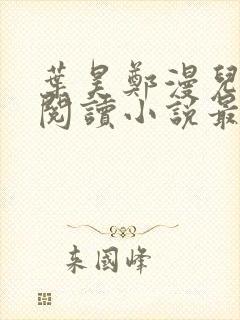 葉昊鄭漫兒
閱讀小說最
来國峰